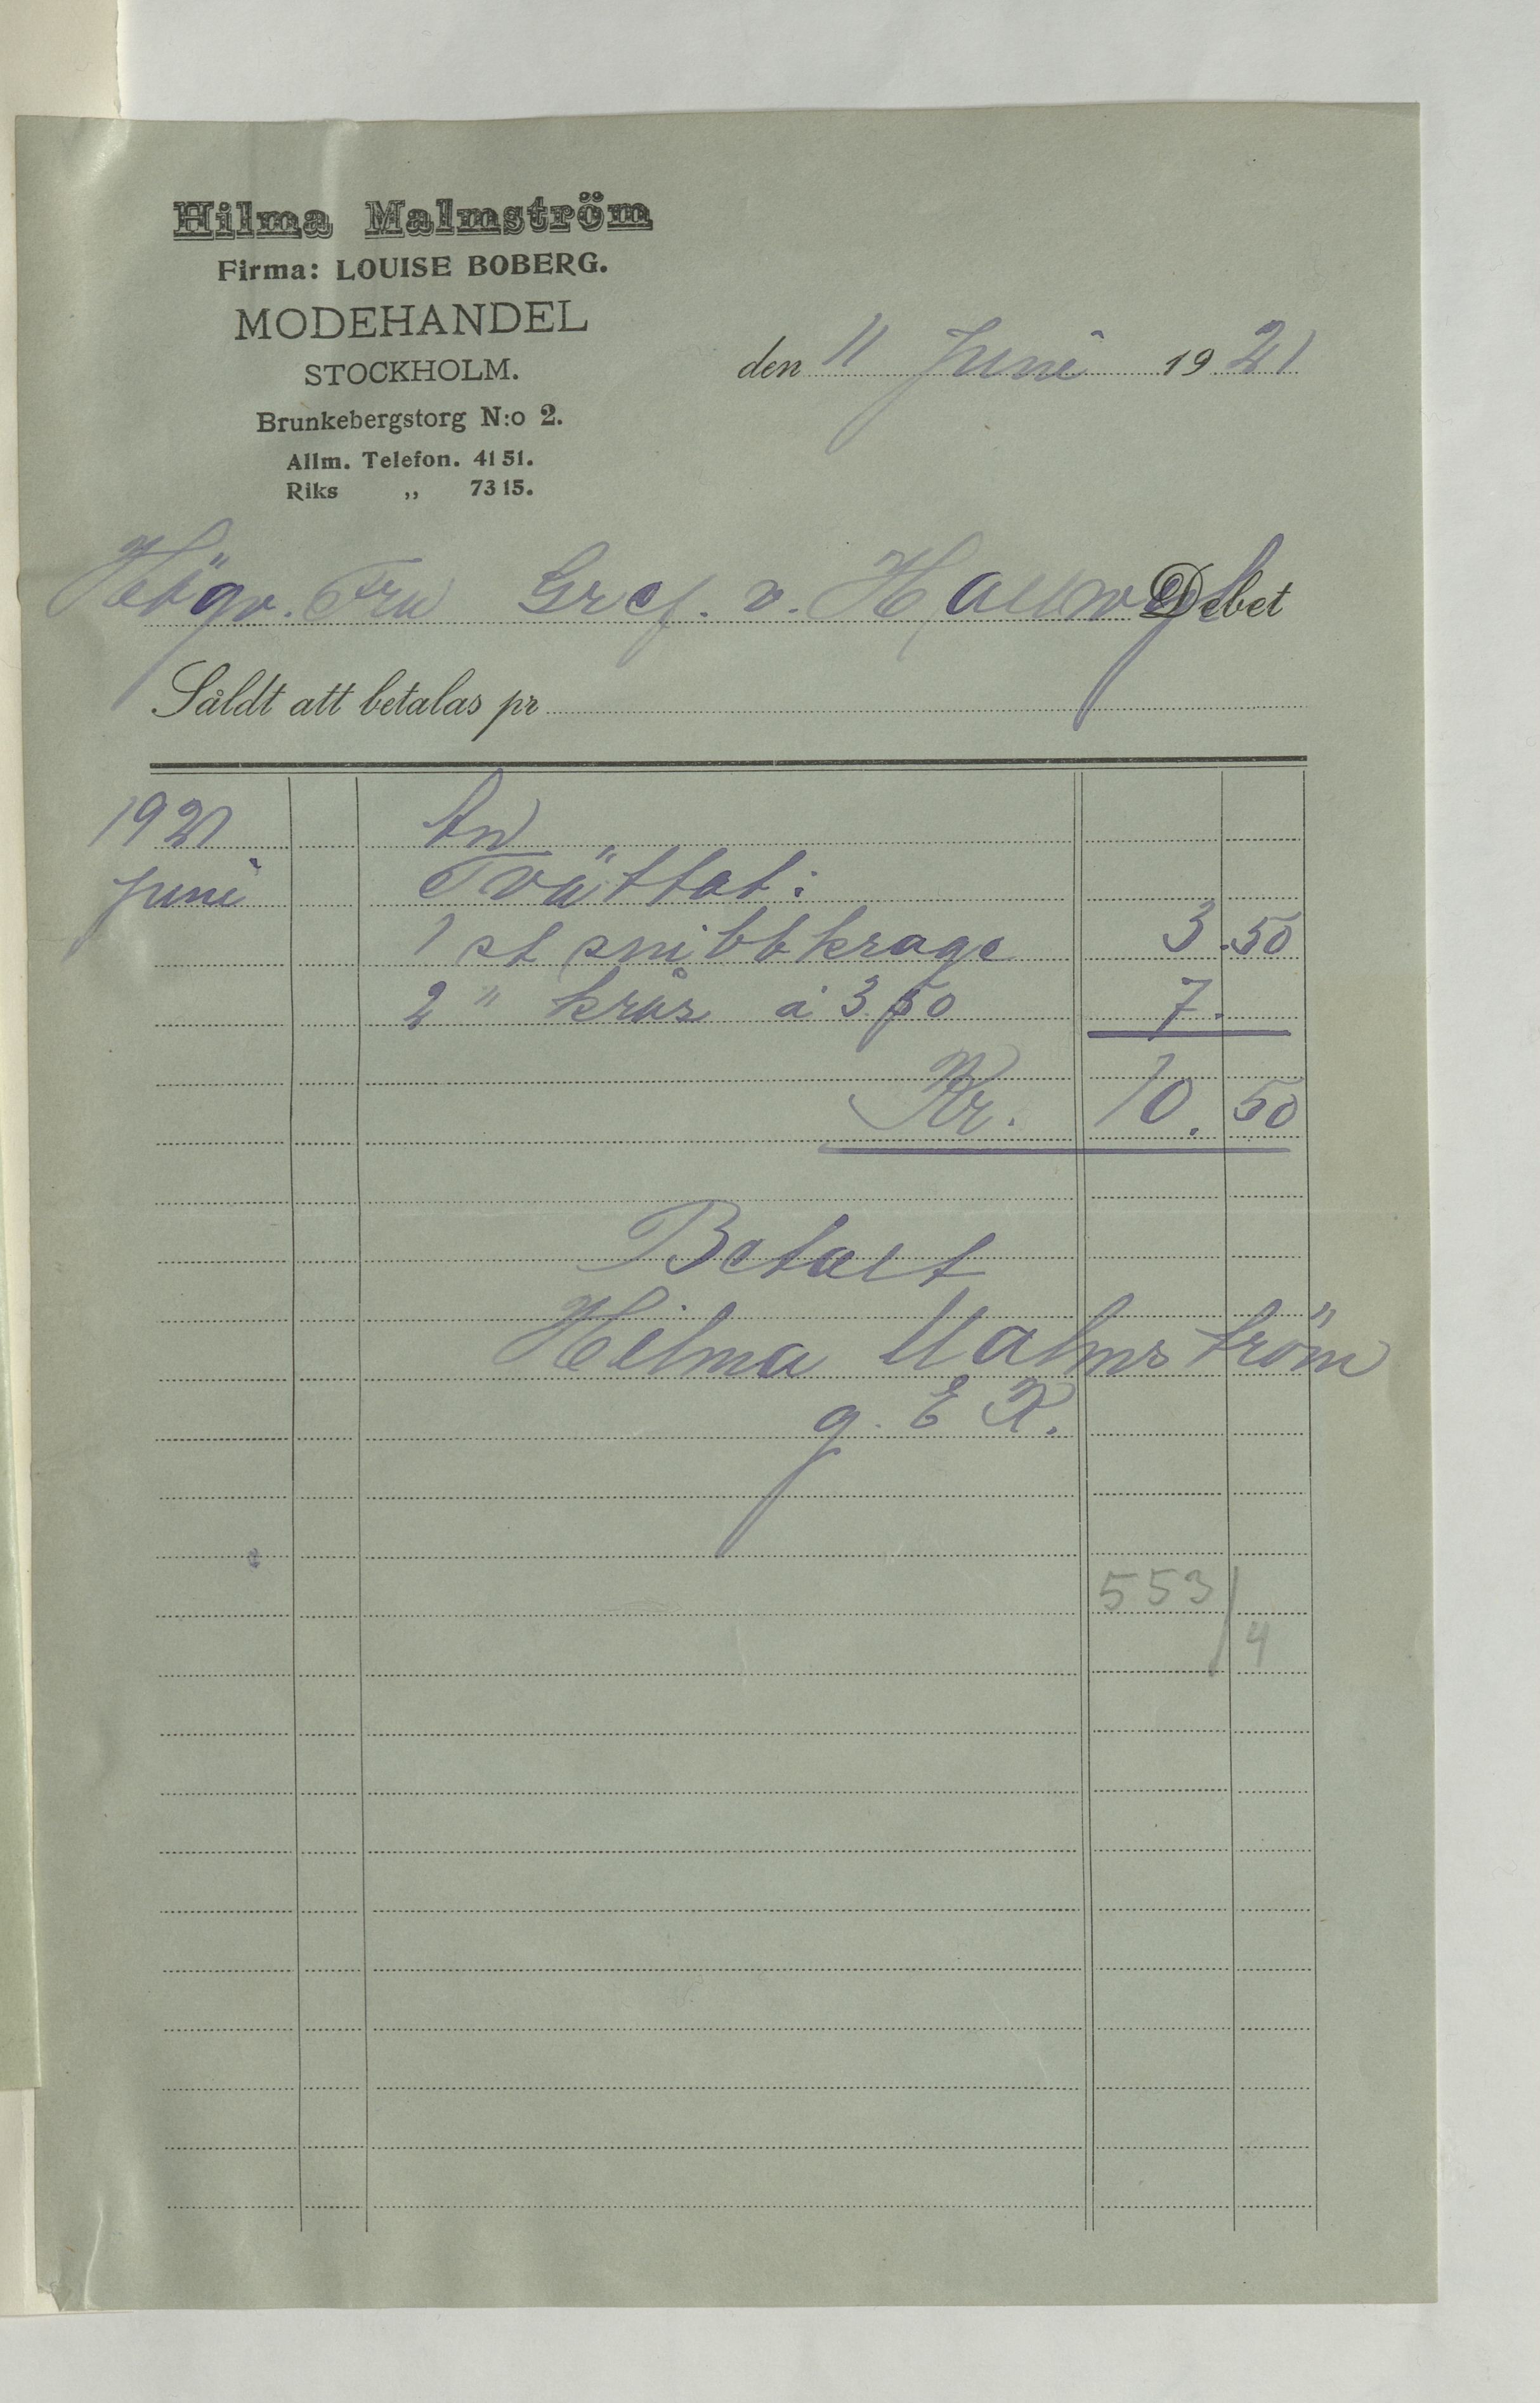 Hilma Malmström
Firma: LOUISE BOBERG.
MODEHANDEL
STOCKHOLM.
Brunkebergstorg N:o 2.
Allm. Telefon. 41 51.
Riks „ 73 15.
den 11 Juni 1921
Högv. Fru Gref. v. Debet
Såldt att betalas pr
1921
Juni Tvättat:
1 st snibbkrage 3.50
2 " krås à 3.50 7.
Kr. 10.50
Betalt
Hilma Malmström
g. E R.
553/4